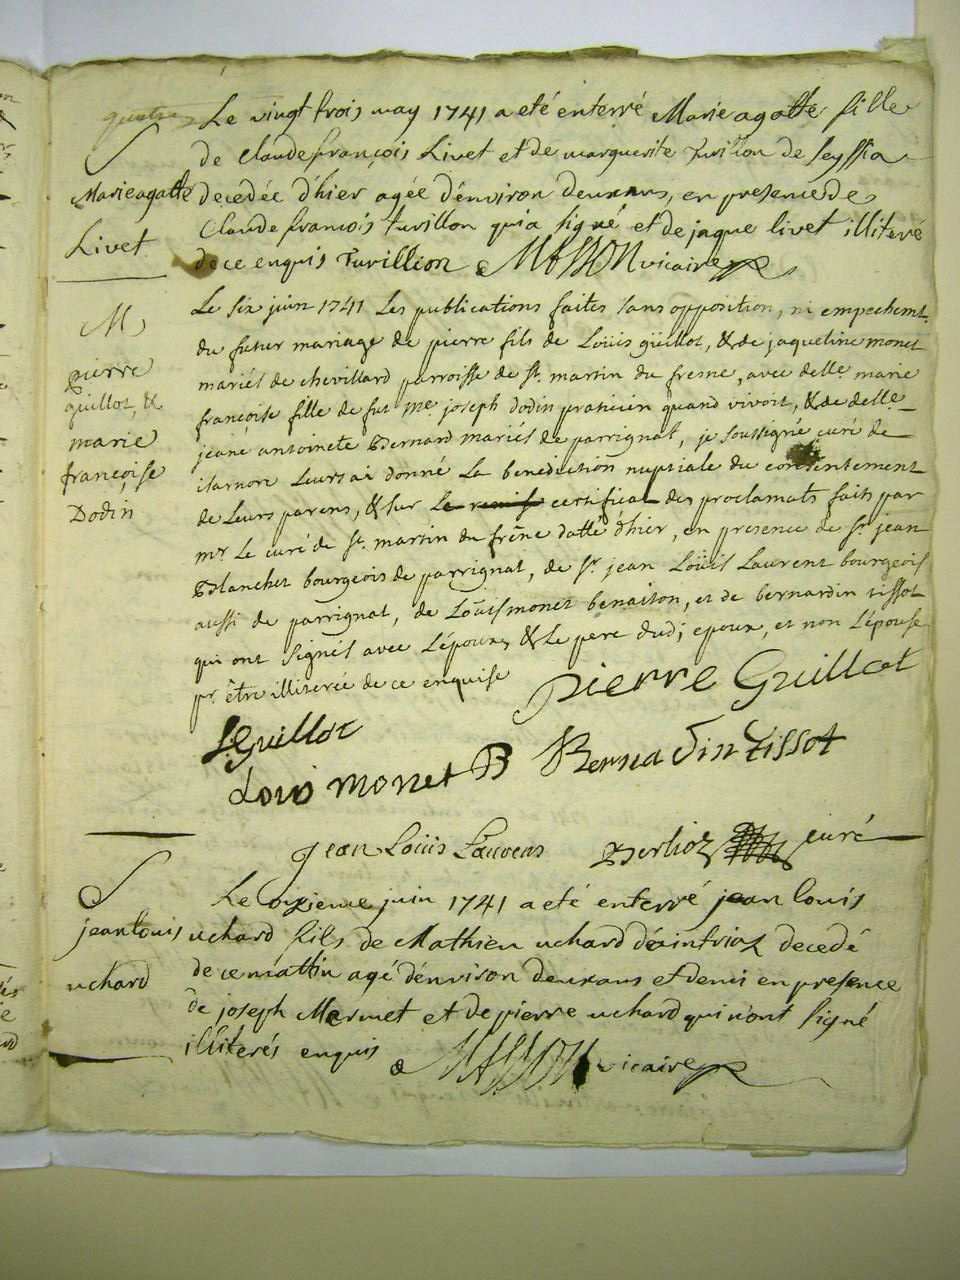 quatre
S
Marie agatte
Livet
Le vingt trois may 1741 a eté enterré Marie agatte fille
de Claude françois Livet et de marguerite turillon de seyssia
decedée d'hier agée d'environ deux ans, en presence de
Claude françois turillon qui a signé et de jaque livet illiteré
de ce enquis Turillion & MASSON vicaire
M
pierre
guillot, &
marie
françoise
Dodin
Le six juin 1741 Les publications faites sans opposition, ni empechemt.
du futur mariage de pierre fils de Loüis guillot, & de jaqueline monet
mariés de chevillard parroisse de st. martin du fresne, avec delle. marie
françoise fille de fut me. joseph dodin praticien quand vivoit, & de delle.
jeane antoinete Bernard mariés de parrignat, je soussigné curé de
isarnore Leurs ai donné La benediction nuptiale du consentement
de Leurs parens, & sur Le certificat des proclamats faits par
mr. Le curé de st. martin du frêne datté d'hier, en presence de sr. jean
Blanchet bourgeois de parrignat, de sr. jean Loüis Laurent bourgeois
aussi de parrignat, de Loüis monet benaiton, et de bernardin tissot
qui ont signés avec L'époux, & Le pere dudi epoux, et non L'épouse
pr. être illiterée de ce enquise
Pierre Guillot
L Guillot
Loüis monet B Bernadin tissot
Jean Loüis Lauvens Berlioz curé
S
jean louis
uchard
Le onzieme juin 1741 a eté enterré jean louis
uchard fils de Mathieu uchard d'aintriaz decedé
de ce mattin agé d'environ deux ans et demi en presence
de joseph Mermet et de pierre uchard qui n'ont signé
illiterés enquis & MASSON vicaire